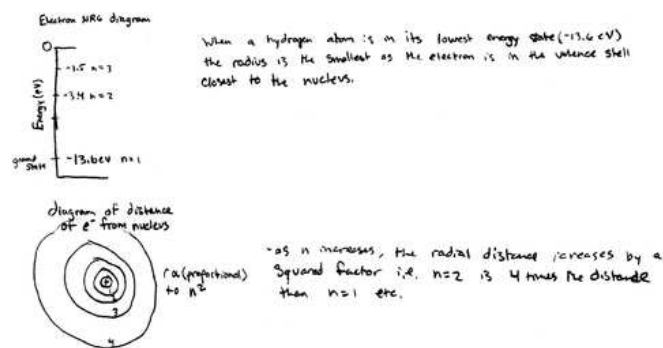 Electron NRG diagram
0
-1.5 n=3
-3.4 n=2
Energy (eV)
ground state
-13.6eV n=1
When a hydrogen atom is in its lowest energy state (-13.6 eV)
the radius is the smallest as the electron is in the valence shell
closest to the nucleus.
diagram of distance
of e⁻ from nucleus
+
3
4
r α (proportional)
to n²
-as n increases, the radial distance icreases by a
squared factor i.e. n=2 is 4 times the distance
than n=1 etc.